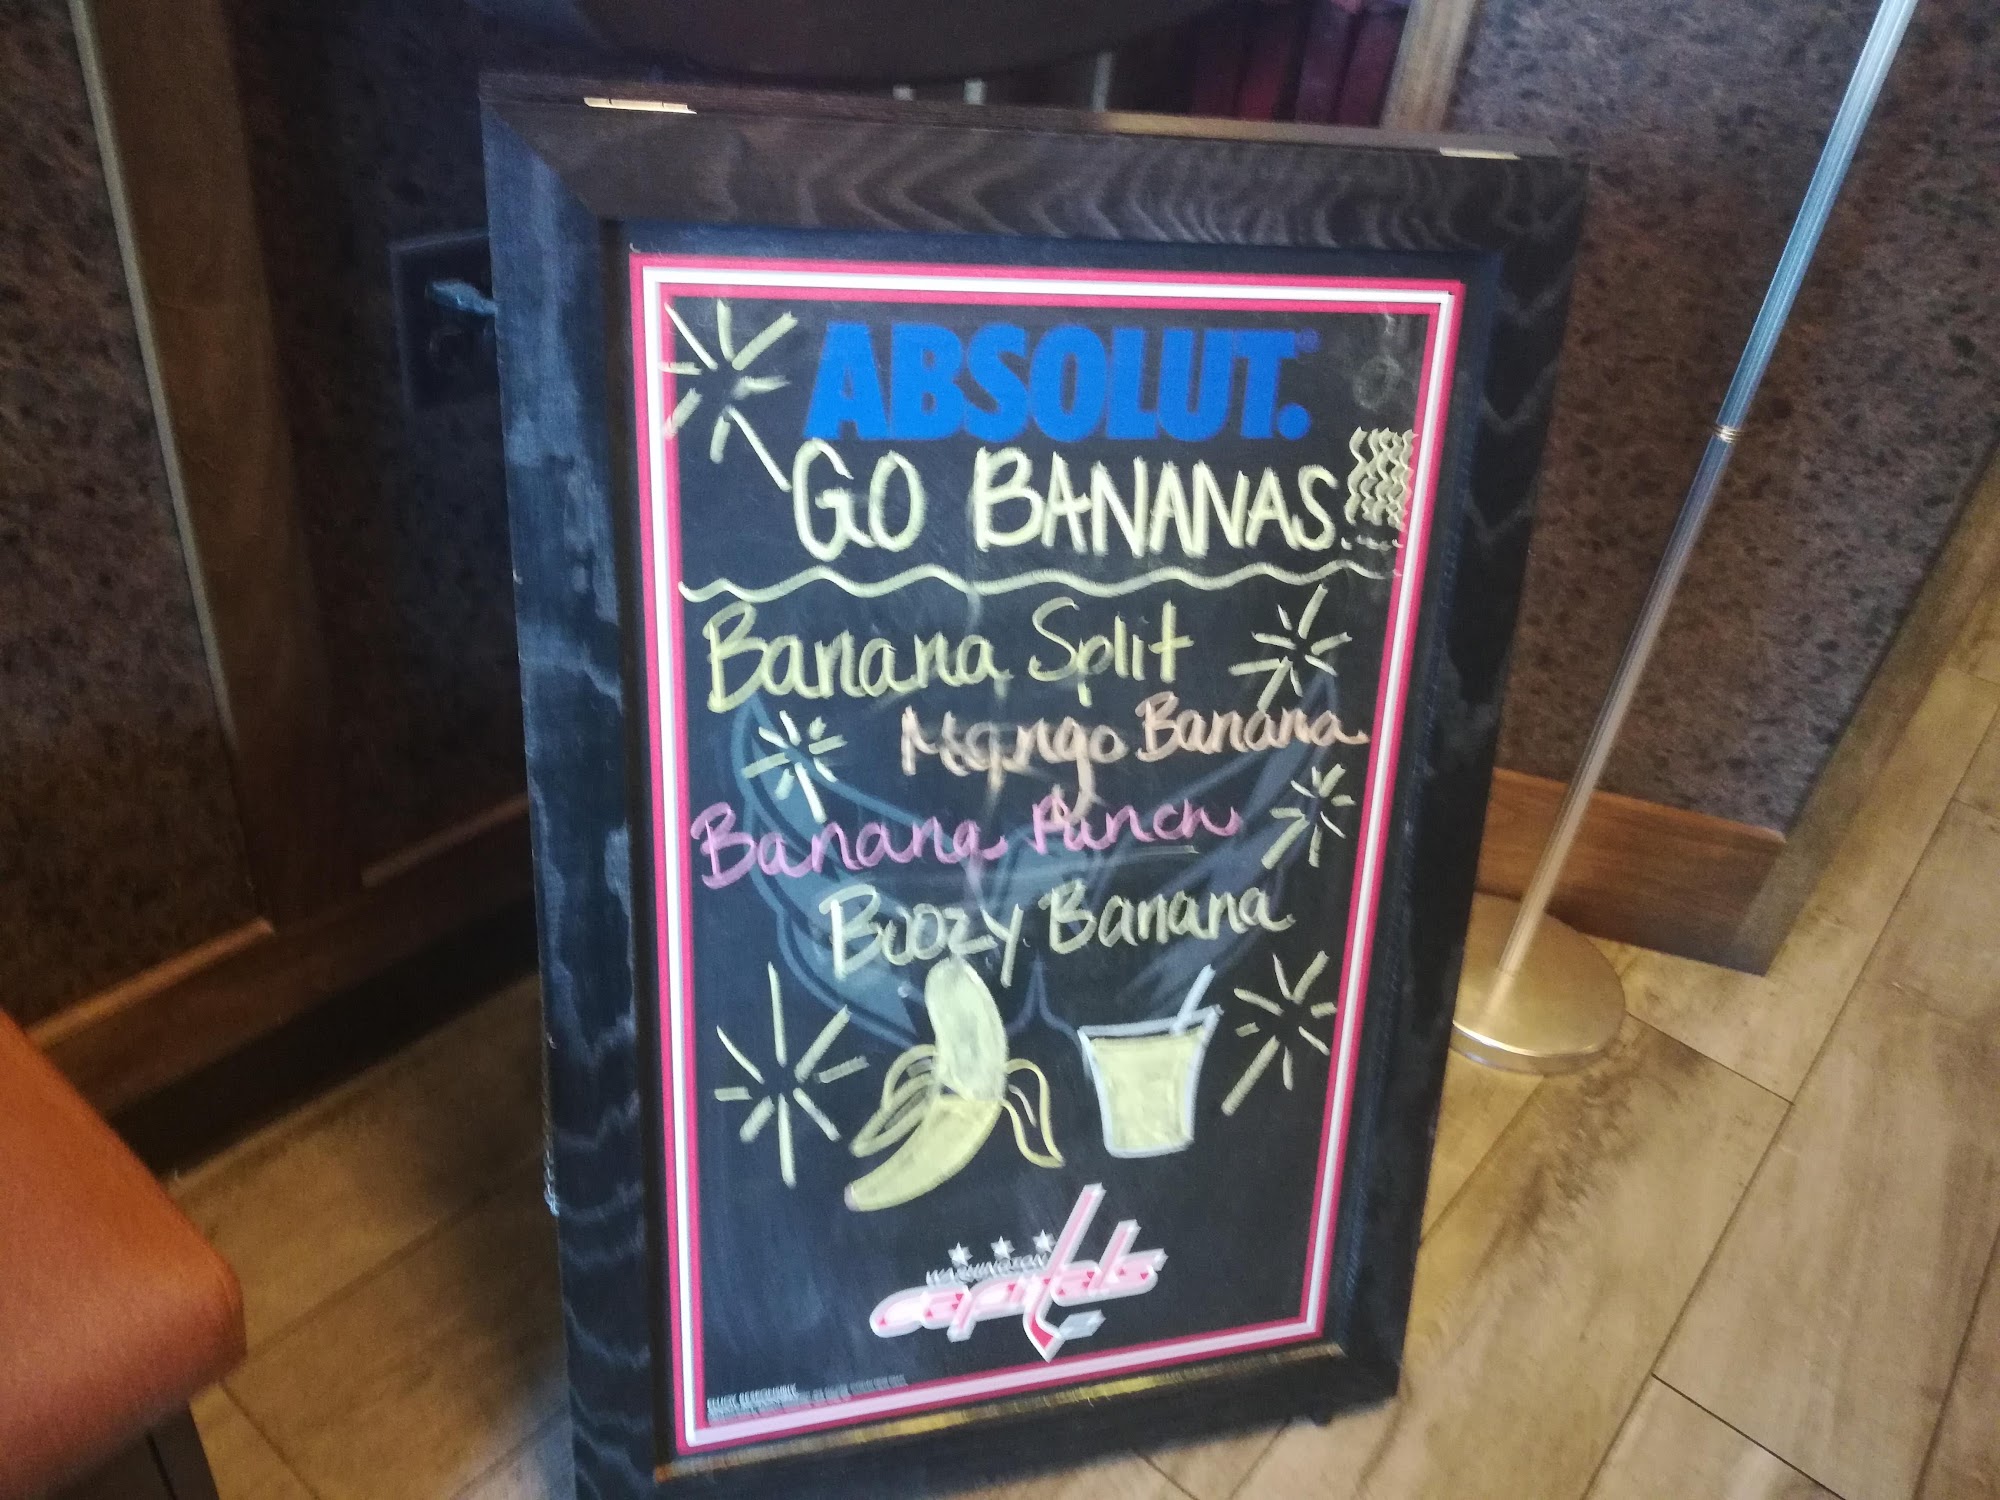 ABSOLUT.
GO BANANAS
Banana Split
Mango Banana
Banana Punch
Boozy Banana
WASHINGTON
capitals